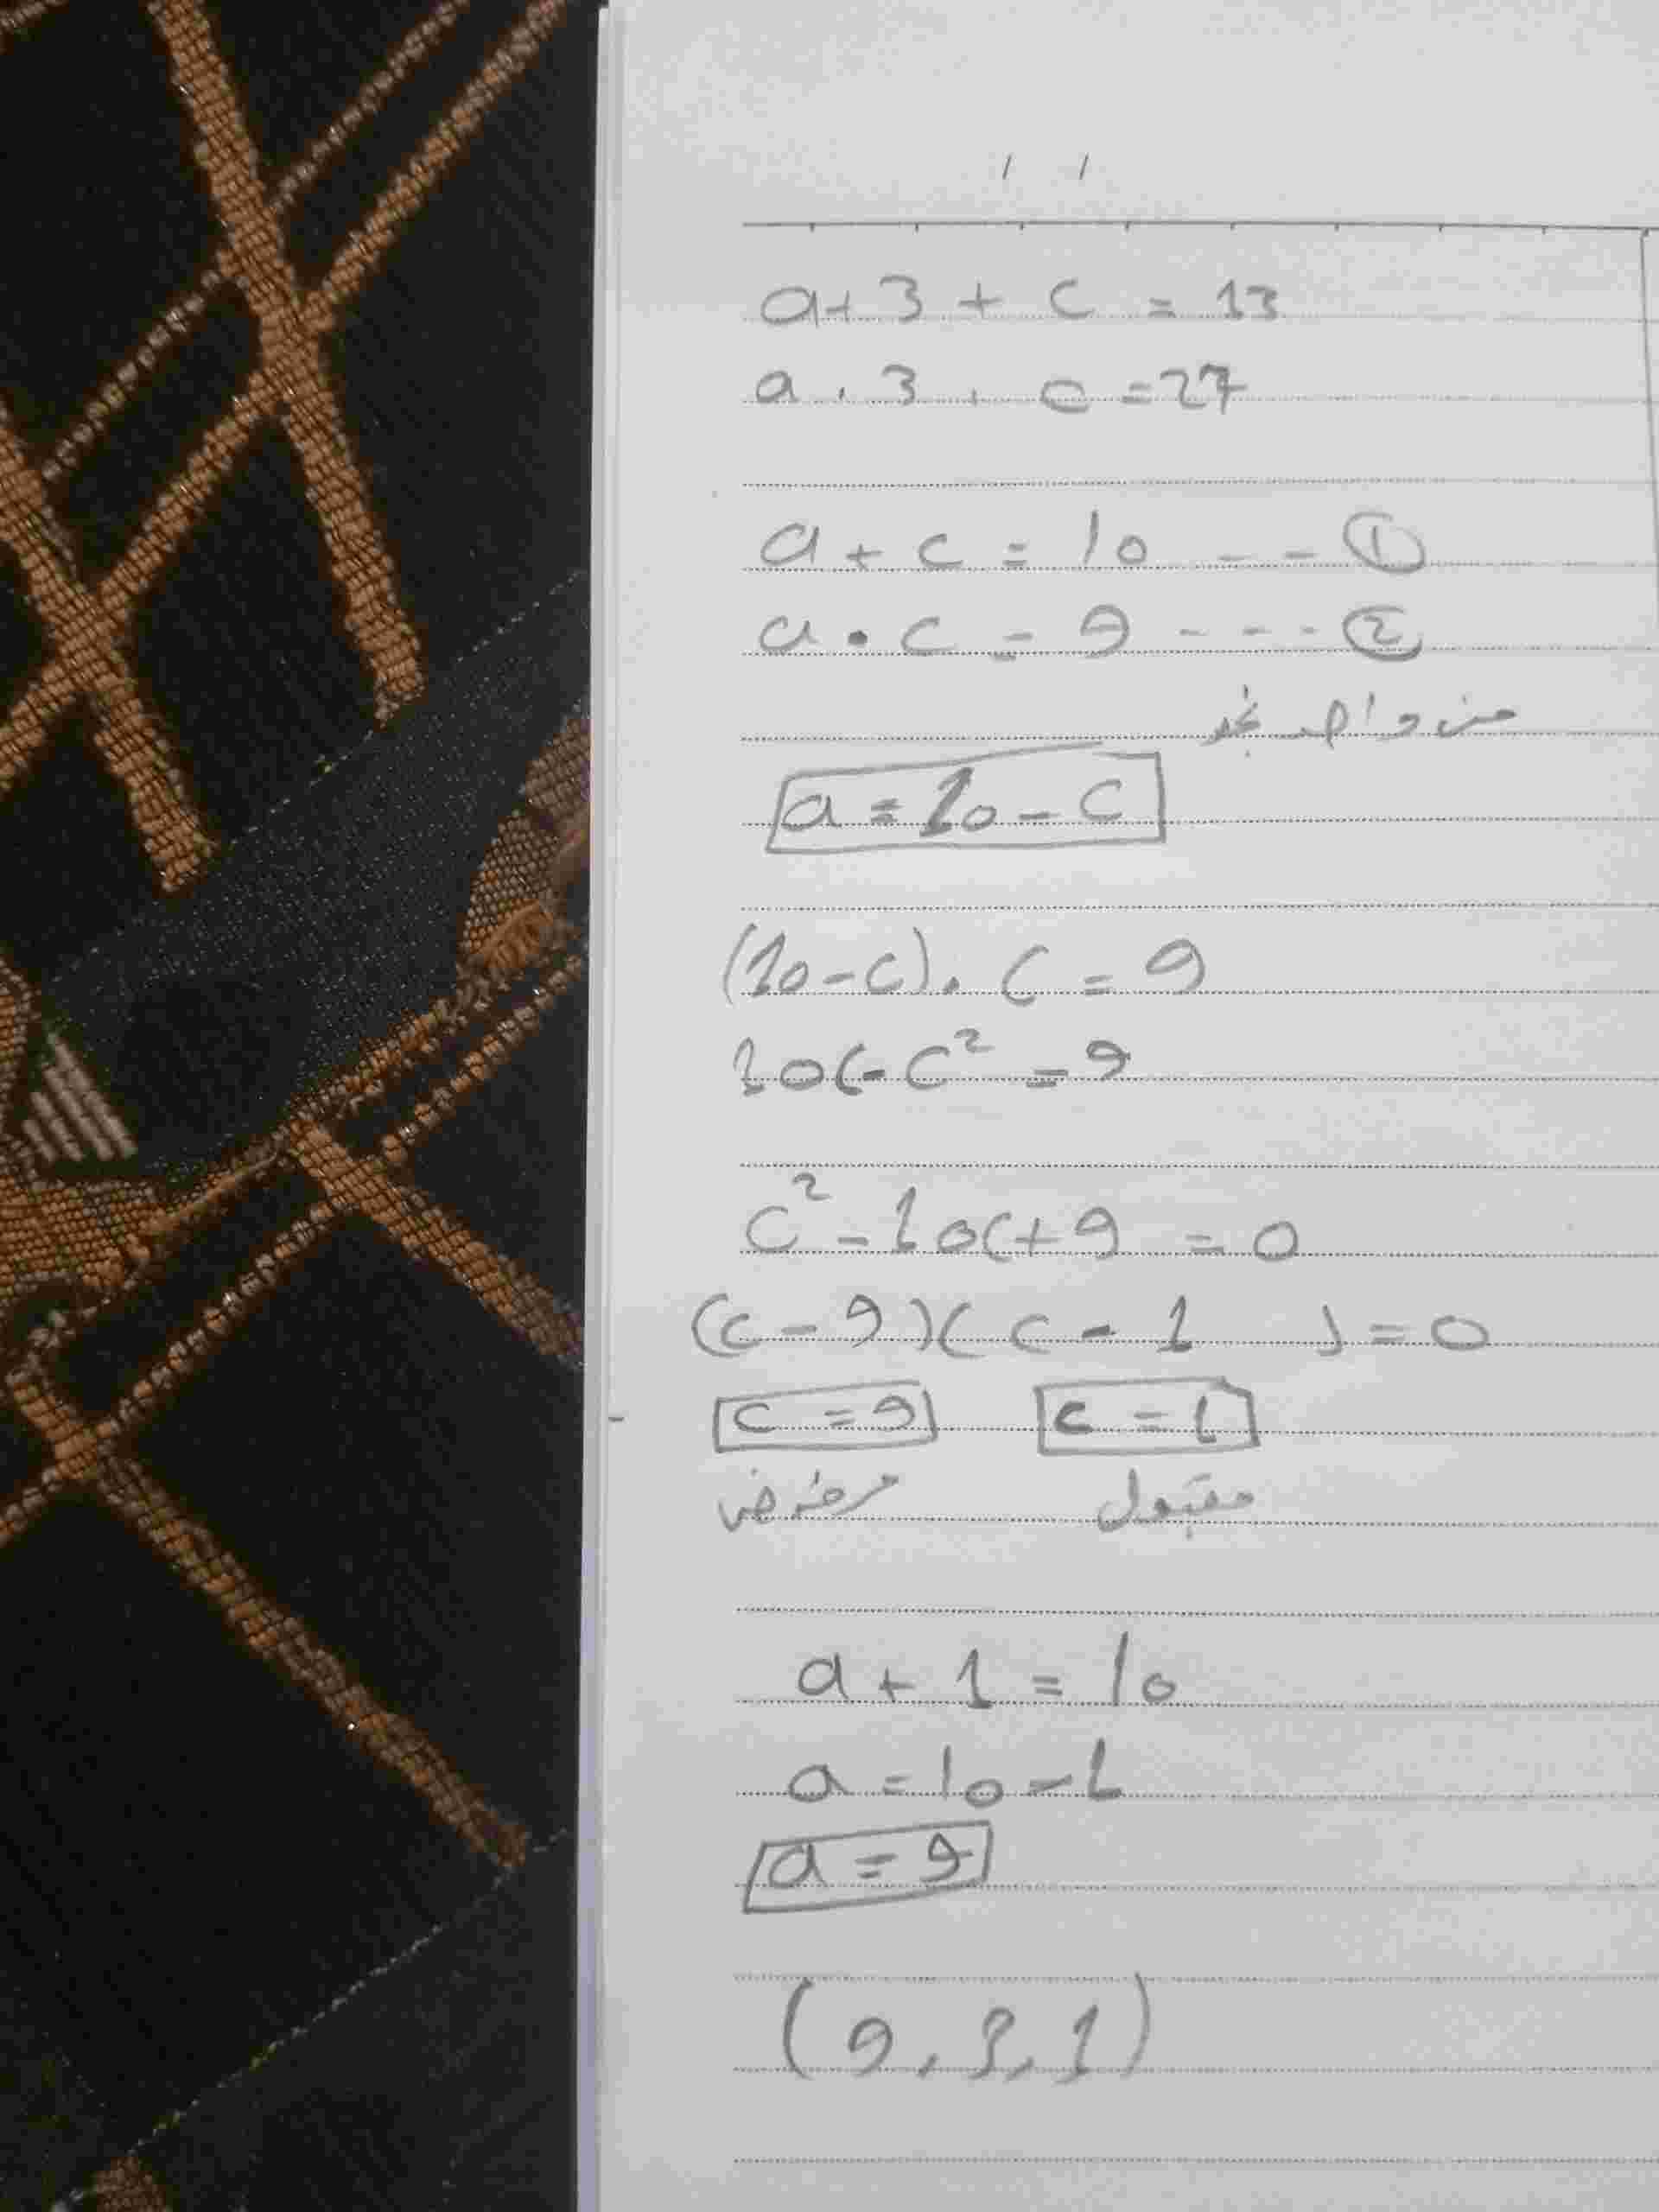 / /
a + 3 + c = 13
a . 3 . c = 27
a + c = 10 - - ①
a • c = 9 - - - ②
من واحد نجد
a = 10 - c
(10 - c) . c = 9
10c - c² = 9
c² - 10c + 9 = 0
(c - 9)(c - 1 ) = 0
c = 9 c = 1
مرفوض مقبول
a + 1 = 10
a = 10 - 1
a = 9
(9, 3, 1)